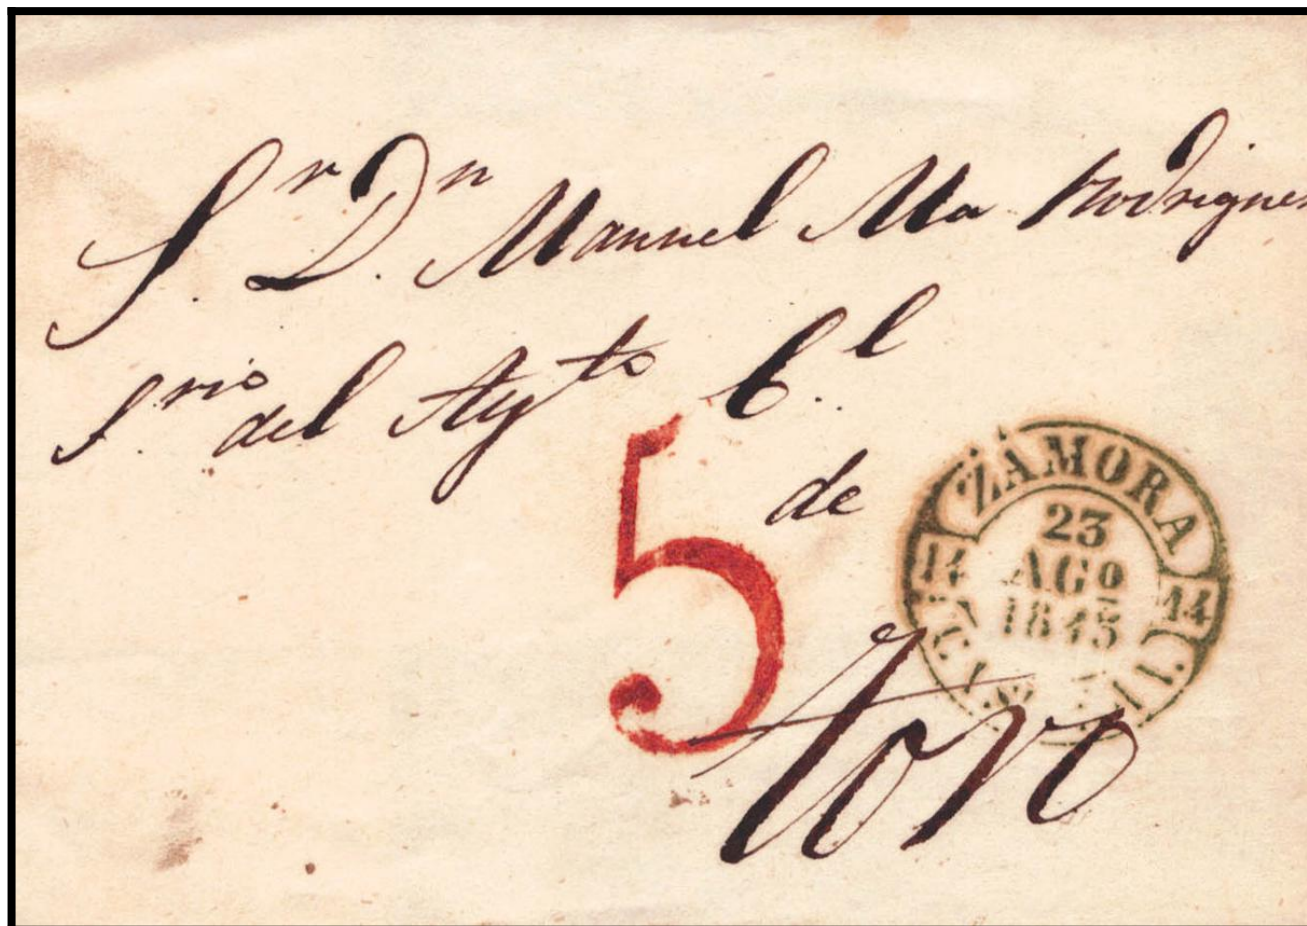 Sr. Dn. Manuel Ma Rodriguez
Srio del Aytto C.l
de
Toro
5
ZAMORA
23
AGO
1845
14
14